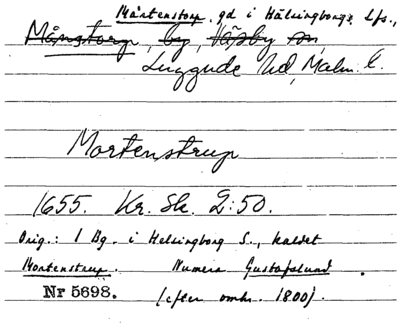 Mårtenstorp, gd i Hälsingborgs Lfs.,
Mångstorp, by, Väsby sn,
Luggude hd, Malm. l.
Mortenstrup
1655. Kr. Sk. 2:50.
Orig.: 1 Bg. i Helsingborg S., kaldet
Mortenstrup. Numera Gustafslund.
Nr 5698. (efter omkr. 1800).